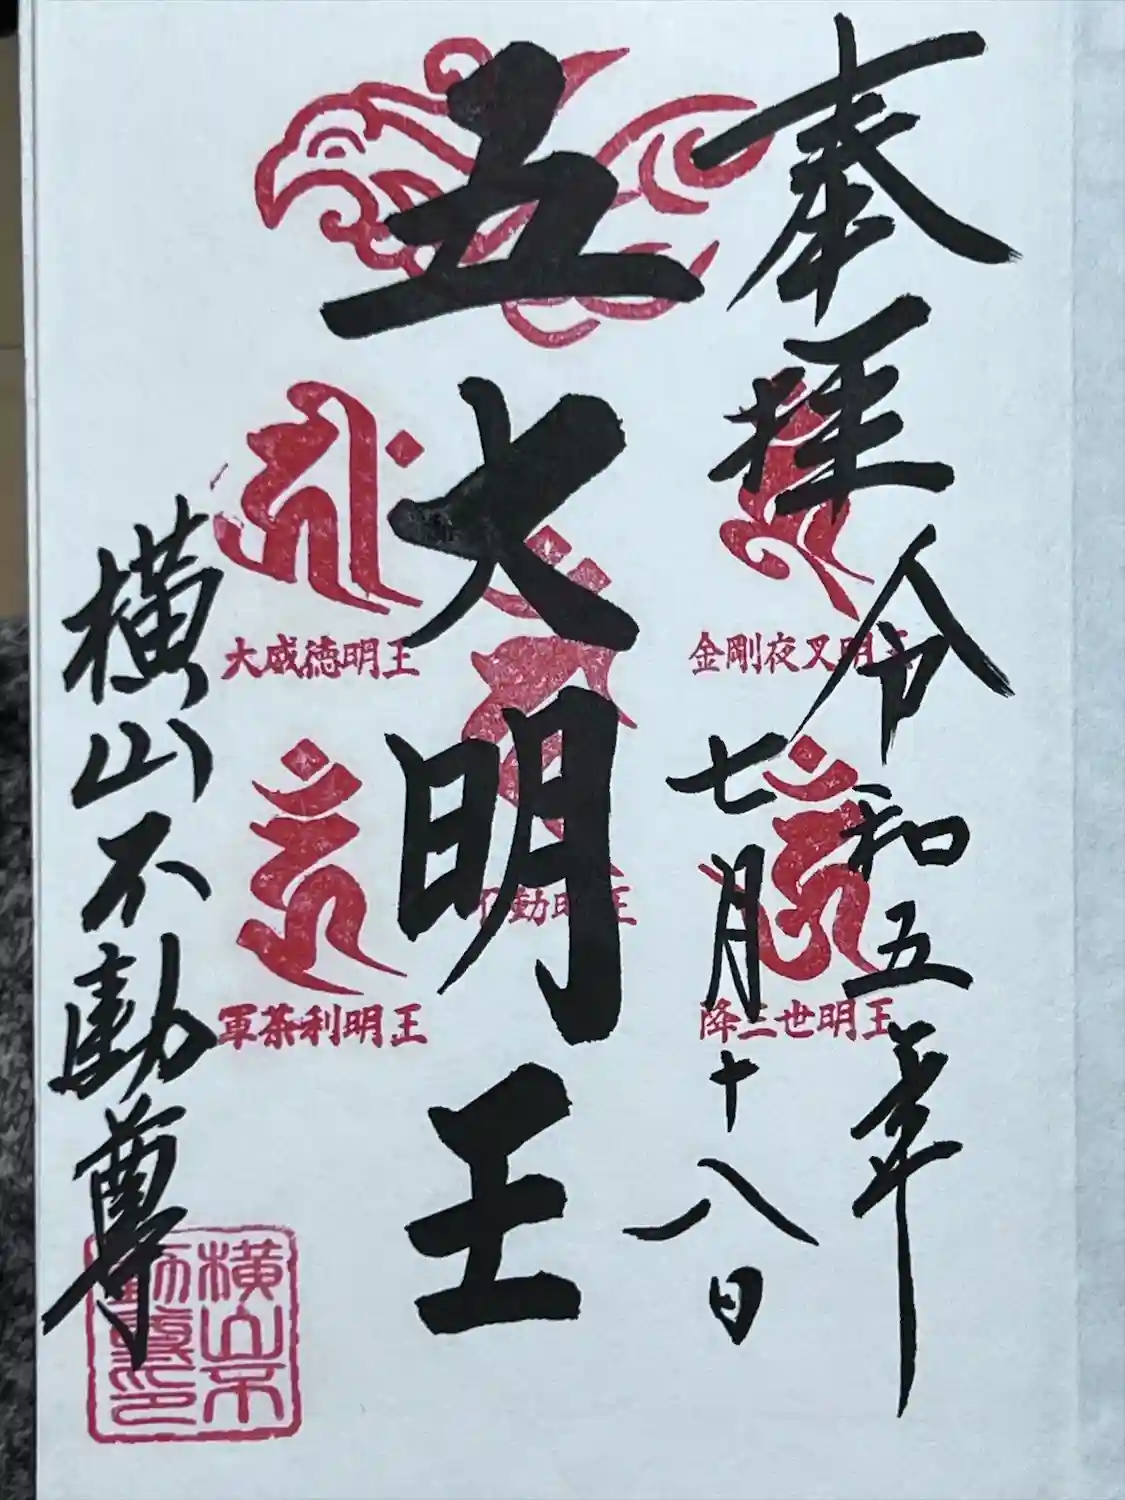 奉拝
令和五年
七月十八日
五大明王
金剛夜叉明王
降三世明王
不動明王
大威徳明王
軍荼利明王
横山不動尊
横山不動尊印